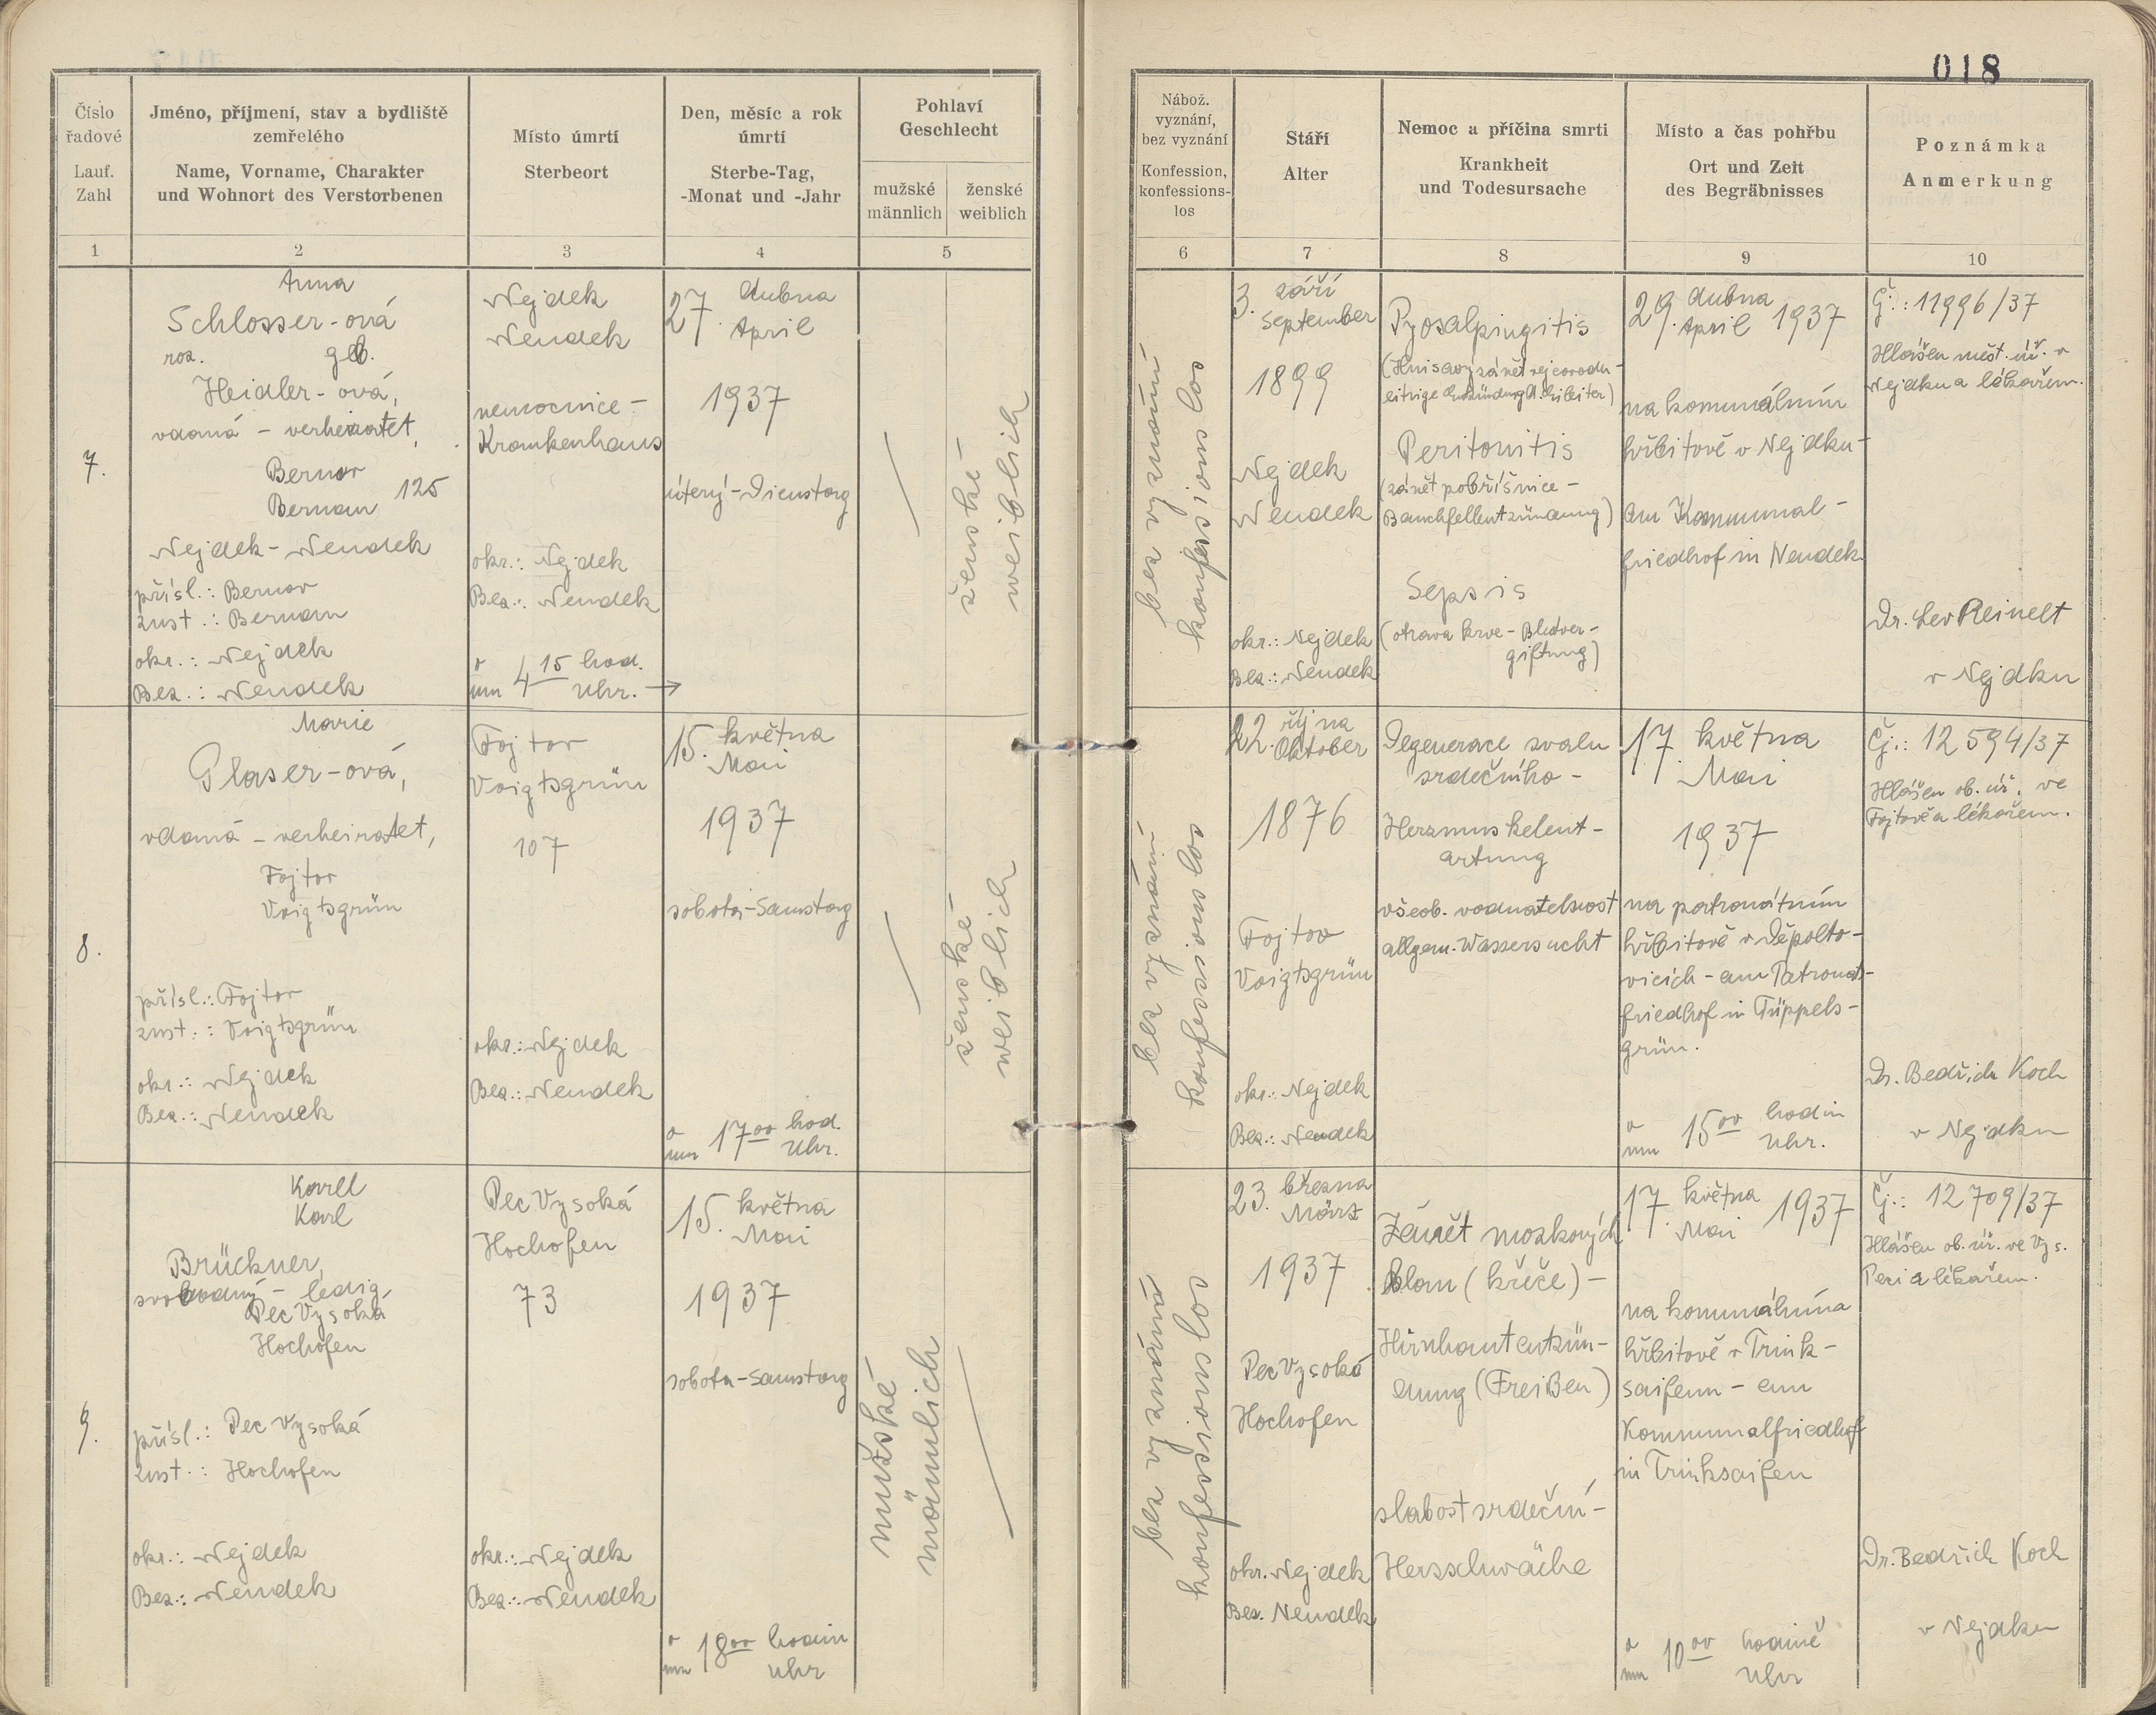 018
Číslo
řadové
Lauf.
Zahl
Jméno, příjmení, stav a bydliště
zemřelého
Name, Vorname, Charakter
und Wohnort des Verstorbenen
Místo úmrtí
Sterbeort
Den, měsíc a rok
úmrtí
Sterbe-Tag,
-Monat und -Jahr
Pohlaví
Geschlecht
mužské
männlich
ženské
weiblich
Nábož.
vyznání,
bez vyznání
Konfession,
konfessions-
los
Stáří
Alter
Nemoc a příčina smrti
Krankheit
und Todesursache
Místo a čas pohřbu
Ort und Zeit
des Begräbnisses
Poznámka
Anmerkung
1 2 3 4 5 6 7 8 9 10
7.
Anna
Schlosser-ová
roz. geb.
Heidler-ová,
vdaná - verheiratet,
Bernov
Bernau 125
Nejdek - Neudek
přísl.: Bernov
zust.: Bernau
okr.: Nejdek
Bez.: Neudek
Nejdek
Neudek
nemocnice -
Krankenhaus
okr.: Nejdek
Bez.: Neudek
o 4 15 hod.
um Uhr. →
27. dubna
April
1937
úterý - Dienstag
ženské -
weiblich
bez vyznání
konfessionslos
3. září
September
1899
Nejdek
Neudek
okr.: Nejdek
Bez.: Neudek
Pyosalpingitis
(Hnisavý zánět vejcovodu -
eitrige Entzündung d. Eileiter)
Peritonitis
(zánět pobřišnice -
Bauchfellentzündung)
Sepsis
(otrava krve - Blutver-
giftung)
29. dubna
April 1937
na komunálním
hřbitově v Nejdku -
am Kommunal-
friedhof in Neudek.
Č.: 11996/37
Hlášen měst. úř. v
Nejdku a lékařem.
Dr. Lev Reinelt
v Nejdku
8.
Marie
Glaser-ová,
vdaná - verheiratet,
Fojtov
Voigtsgrün
přísl.: Fojtov
zust.: Voigtsgrün
okr.: Nejdek
Bez.: Neudek
Fojtov
Voigtsgrün
107
okr.: Nejdek
Bez.: Neudek
15. května
Mai
1937
sobota - Samstag
o 17 00 hod.
um Uhr.
ženské -
weiblich
bez vyznání
konfessionslos
22. října
Oktober
1876
Fojtov
Voigtsgrün
okr.: Nejdek
Bez.: Neudek
Degenerace svalu
srdečního -
Herzmuskelent-
artung
všeob. vodnatelnost
allgem. Wassersucht
17. května
Mai
1937
na patronátním
hřbitově v Děpolto-
vicích - am Patronats-
friedhof in Tüppels-
grün.
o 15 00 hodin
um Uhr.
Čj.: 12 594/37
Hlášen ob. úř. ve
Fojtově a lékařem.
Dr. Bedřich Koch
v Nejdku
9.
Karel
Karl
Brückner,
svobodný - ledig,
Pec Vysoká
Hochofen
přísl.: Pec Vysoká
zust.: Hochofen
okr.: Nejdek
Bez.: Neudek
Pec Vysoká
Hochofen
73
okr.: Nejdek
Bez.: Neudek
15. května
Mai
1937
sobota - Samstag
o 18 00 hodin
um Uhr
mužské
männlich
bez vyznání
konfessionslos
23. března
März
1937
Pec Vysoká
Hochofen
okr. Nejdek
Bez. Neudek
Zánět mozkových
blan (křeče) -
Hirnhautentzün-
dung (Freißen)
slabost srdeční -
Herzschwäche
17. května
Mai 1937
na komunálním
hřbitově v Trink-
saifenu - am
Kommunalfriedhof
in Trinksaifen
o 10 00 hodině
um Uhr
Čj.: 12 709/37
Hlášen ob. úř. ve Vys.
Peci a lékařem.
Dr. Bedřich Koch
v Nejdku